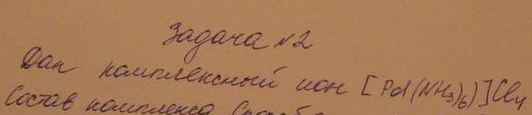 Задача №2
Дан комплексный ион [Pd(NH3)6)]Cl4
Состав комплекса